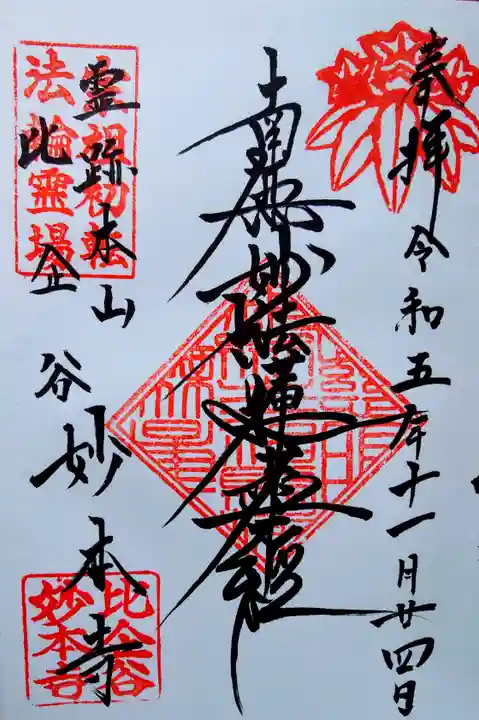 奉拝
令和五年十一月廿四日
南無妙法蓮華経
霊跡本山
比企谷
妙本寺
祖初転
法輪霊場
比企谷
妙本寺